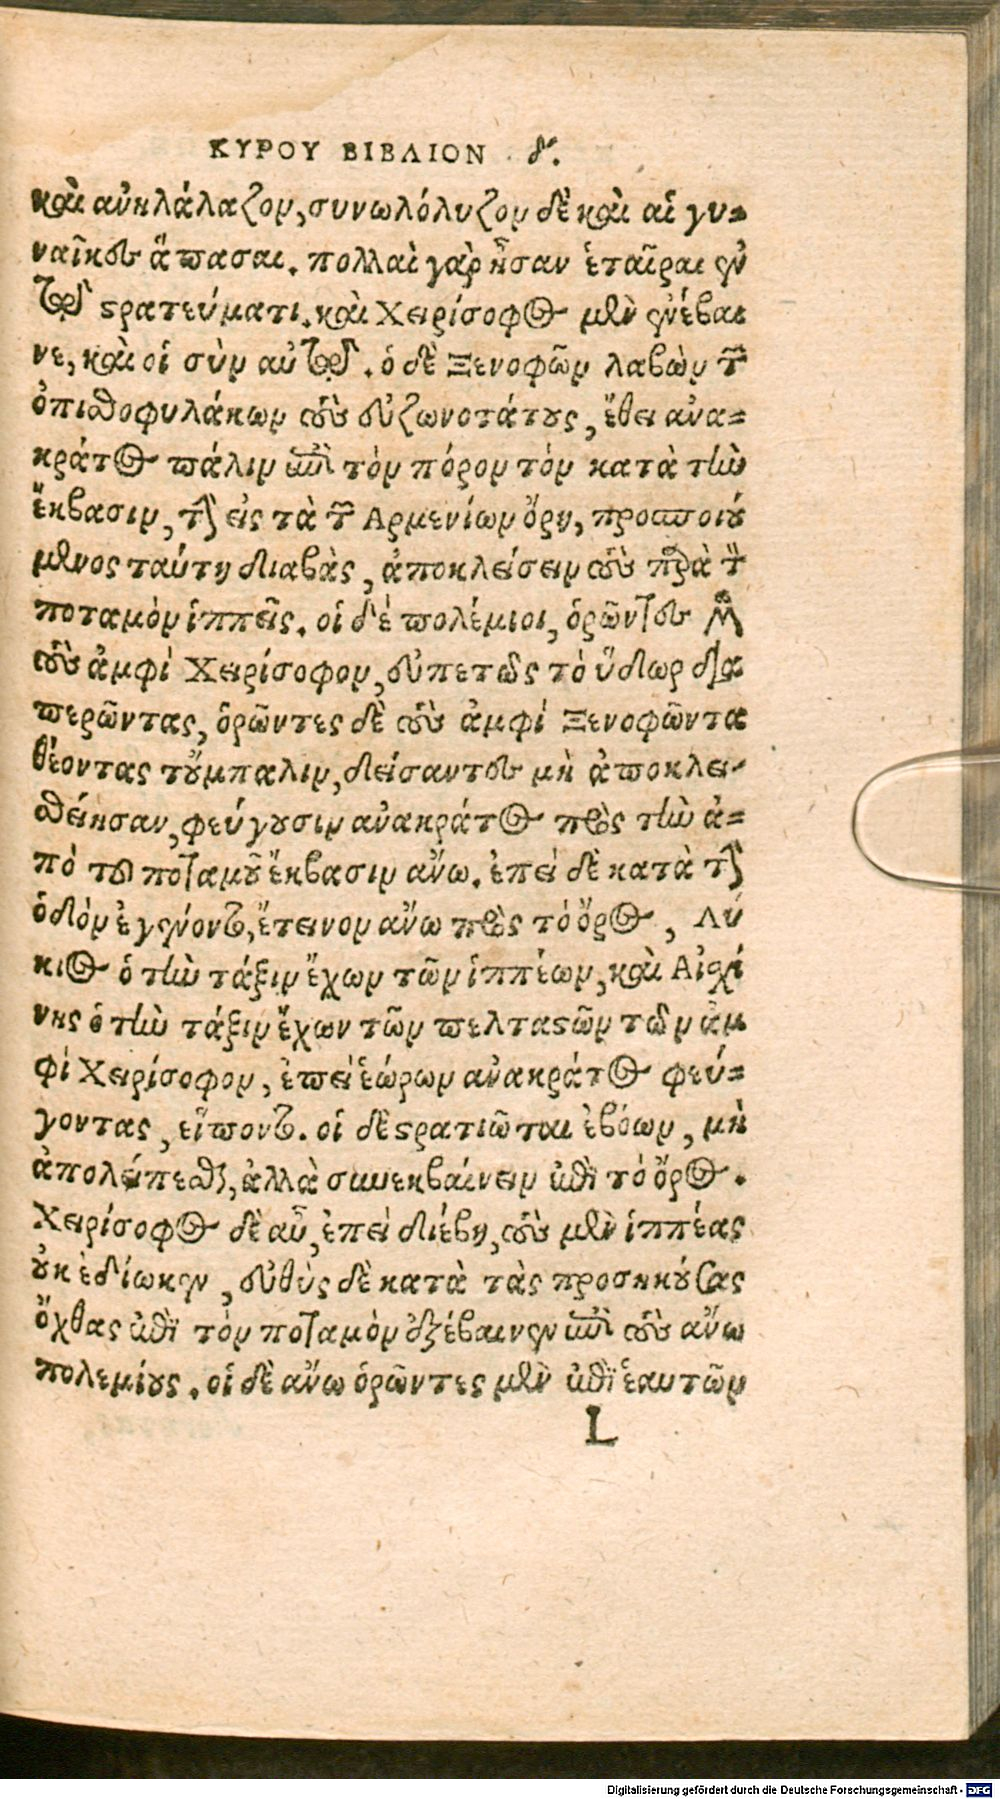 ΚΥΡΟΥ ΒΙΒΛΙΟΝ δ.
καὶ ἀνηλάλαζον, συνωλόλυζον δὲ καὶ αἱ γυ=
ναῖκες ἅπασαι. πολλαὶ γὰρ ἦσαν ἑταῖραι ἐν
τῷ στρατεύματι. καὶ Χειρίσοφος μὲν ἐνέβαι
νε, καὶ οἱ σὺν αὐτῷ. ὁ δὲ Ξενοφῶν λαβὼν τῶν
ὀπισθοφυλάκων τοὺς εὐζωνοτάτους, ἔθει ἀνα=
κράτος πάλιν ἐπὶ τὸν πόρον τὸν κατὰ τὴν
ἔκβασιν, τὴν εἰς τὰ τῶν Αρμενίων ὄρη, προσποιού
μενος ταύτη διαβὰς, ἀποκλείσειν τοὺς παρὰ τὸν
ποταμὸν ἱππεῖς. οἱ δὲ πολέμιοι, ὁρῶντες μὲν
τοὺς ἀμφὶ Χειρίσοφον, εὐπετῶς τὸ ὕδωρ δια
περῶντας, ὁρῶντες δὲ τοὺς ἀμφὶ Ξενοφῶντα
θέοντας τοὔμπαλιν, δείσαντες μὴ ἀποκλει-
σθείησαν, φεύγουσιν ἀνακράτος πρὸς τὴν ἀ=
πὸ τοῦ ποταμοῦ ἔκβασιν ἄνω. ἐπεὶ δὲ κατὰ τὴν
ὁδὸν ἐγένοντο, ἔτεινον ἄνω πρὸς τὸ ὄρος, Λύ
κιος ὁ τὴν τάξιν ἔχων τῶν ἱππέων, καὶ Αἰσχί
νης ὁ τὴν τάξιν ἔχων τῶν πελταστῶν τῶν ἀμ
φὶ Χειρίσοφον, ἐπεὶ ἑώρων ἀνακράτος φεύ=
γοντας, εἵποντο. οἱ δὲ στρατιῶται ἐβόων, μὴ
ἀπολείπεσθαι, ἀλλὰ συνεκβαίνειν ἐπὶ τὸ ὄρος.
Χειρίσοφος δὲ αὖ, ἐπεὶ διέβη, τοὺς μὲν ἱππέας
οὐκ ἐδίωκεν, εὐθὺς δὲ κατὰ τὰς προσηκούσας
ὄχθας ἐπὶ τὸν ποταμὸν ἐξέβαινεν ἐπὶ τοὺς ἄνω
πολεμίους. οἱ δὲ ἄνω ὁρῶντες μὲν ἐπὶ ἑαυτῶν
L
Digitalisierung gefördert durch die Deutsche Forschungsgemeinschaft - DFG